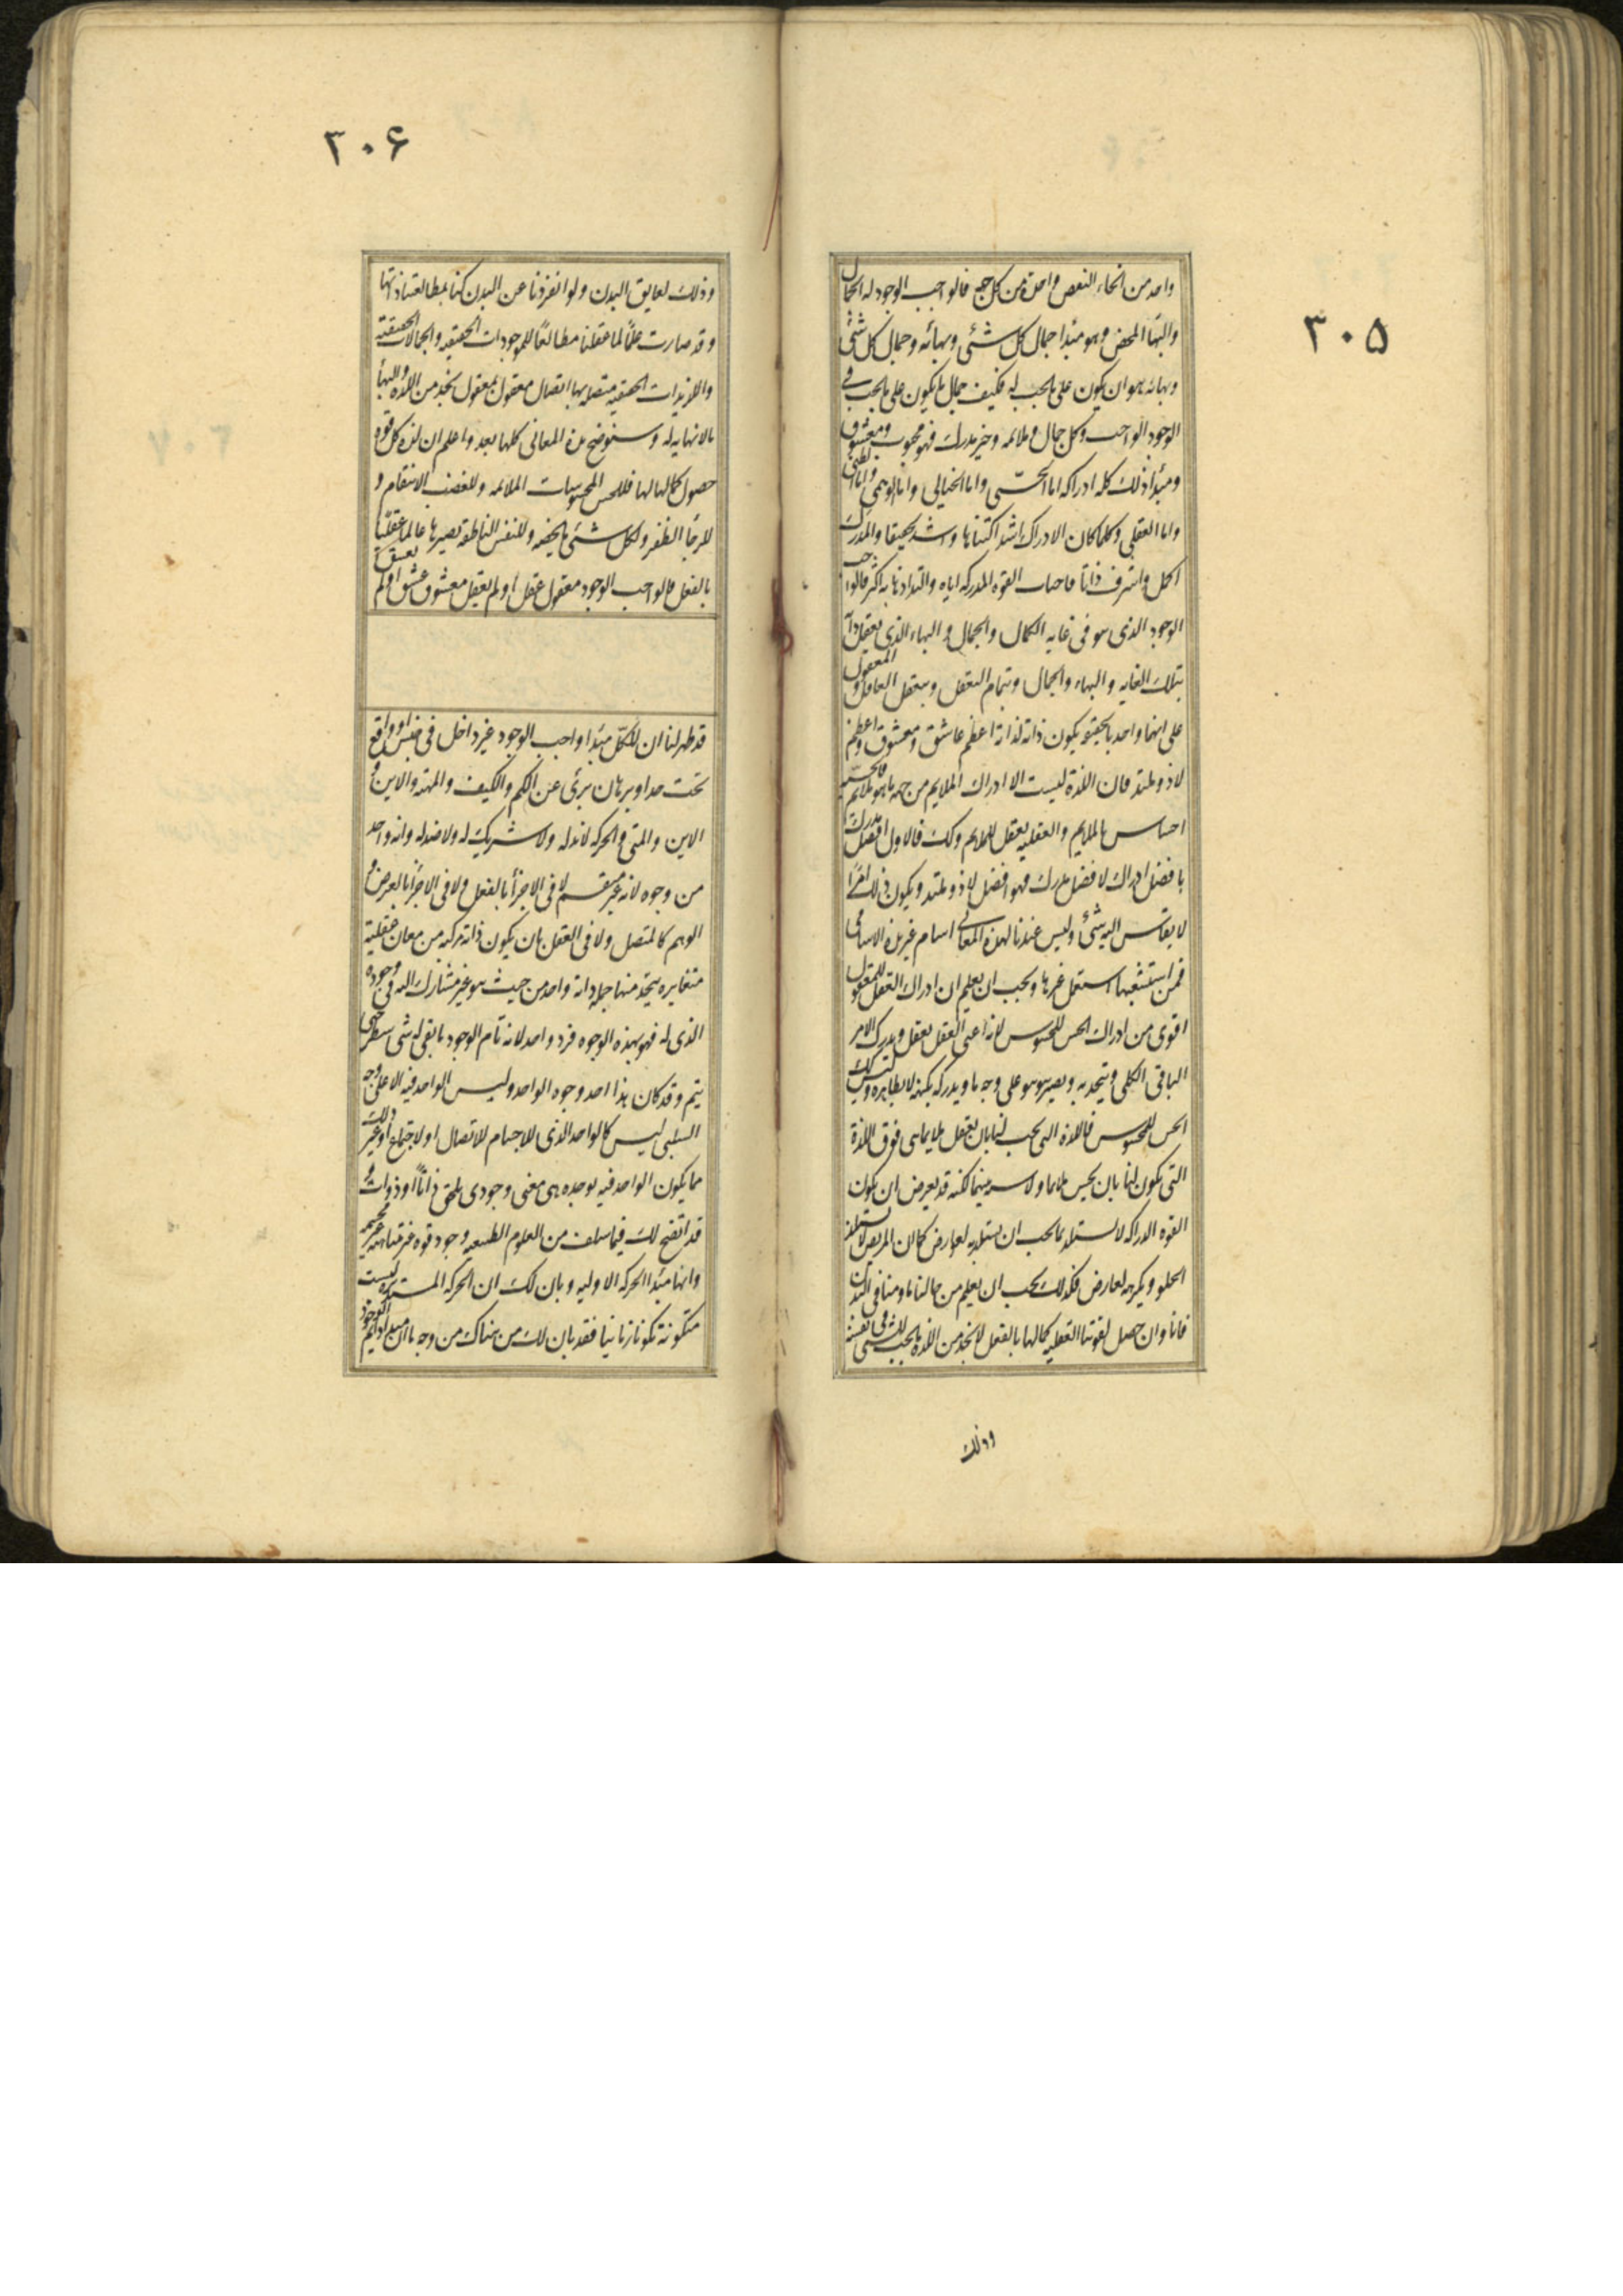 ٣٠۵
واحد من انحاء النقص واحدة من كل جهه فالواجب الوجود له الجمال
والبهاء المحض وهو مبدا جمال كل شئ وبهائه وجمال كل شئ
وبهائه هو ان يكون على ما يجب له فكيف جمال ما يكون على ما يجب فى
الوجود الواجب وكل جمال وملائمه وخير مدرك فهو محبوب ومعشوق
ومبدأ ذلك كله ادراكه اما الحسّى واما الخيالى واما الوهمى واما الظنى
واما العقلى وكلما كان الادراك اشد اكتناها واشد تحقيقا والمدرك
اكمل واشرف ذاتا فاحباب القوه المدركه اياه والتذاذها به اكثر فالواجب
الوجود الذى هو فى غايه الكمال والجمال والبهاء الذى يعقل ذاته
بتلك الغايه والبهاء والجمال وبتمام التعقل وبتعقل العاقل والمعقول
على انهما واحد بالحقيقه يكون ذاته لذاته اعظم عاشق ومعشوق واعظم
لاذ وملتذ فان اللذة ليست الا ادراك الملايم من جهه ما هو ملايم فالحسيه
احساس بالملايم والعقليه تعقل للملايم وكك فالاول افضل مدرك
بافضل ادراك لافضل مدرك فهو افضل لاذ وملتذ ويكون ذلك امرًا
لا يقاس اليه شئ وليس عندنا لهذه المعانى اسام غير هذه الاسامى
فمن استشبعها استعمل غيرها ويجب ان يعلم ان ادراك العقل للمعقول
اقوى من ادراك الحس للمحسوس لانه اعنى العقل يعقل ويدرك الامر
الباقى الكلى ويتحد به ويصير هو هو على وجه ما ويدركه بكنهه لا بظاهره وليس كك
الحس للمحسوس فاللذه التى تجب لنا بان نعقل ملايما هى فوق اللذة
التى تكون لنا بان نحس ملايما ولا نسبه بينهما لكنه قد يعرض ان يكون
القوه الدراكه لا تستلذ بما يجب ان تستلذ به لعوارض كما ان المريض لا يستلذ
الحلو ويكرهه لعارض فكذلك يجب ان يعلم من حالنا ما دمنا فى البدن
فانا وان حصل لقوتنا العقليه كمالها بالفعل لا نجد من اللذه ما يجب للشئ فى نفسه
وذلك
٣٠۶
وذلك لعايق البدن ولو انفردنا عن البدن كنا بمطالعتنا ذاتها
وقد صارت عالمًا لما عقلنا مطالعًا للموجودات الحقيقيه والجمالات الحقيقيه
واللذيذات الحقيقيه متصله بها اتصال معقول بمعقول نجد من اللذه والبهاء
ما لا نهايه له وسنوضح هذه المعانى كلها بعد واعلم ان لذه كل قوه
حصول كمالها لها فللحس المحسوسات الملائمه وللغضب الانتقام و
للرجاء الظفر ولكل شئ ما يخصه وللنفس الناطقه تصيرها عالما عقليًا
بالفعل فالواجب الوجود معقول عقل او لم يعقل معشوق عشق او لم يعشق
قد ظهر لنا ان للكل مبدا واجب الوجود غير داخل فى جنس او واقع
تحت حد او برهان برئ عن الكم والكيف والمهيه والاين و
الاين والمتى والحركه لا ند له ولا شريك له ولا ضد له وانه واحد
من وجوه لانه غير منقسم لا فى الاجزأ بالفعل ولا فى الاجزأ بالعرض و
الوهم كالمتصل ولا فى العقل بان يكون ذاته مركبه من معان عقليه
متغايره يتحد منها جمله وانه واحد من حيث هو غير مشارك البته فى وجوده
الذى له فهو بهذه الوجوه فرد واحد لانه تام الوجود ما بقى له شى ينتظر حتى
يتم وقد كان هذا احد وجوه الواحد وليس الواحد فيه الا على وجه
السلبى ليس كالواحد الذى للاجسام للاتصال او لاجتماع او غير ذلك
مما يكون الواحد فيه بوحده هى معنى وجودى يلحق ذاتًا او ذوات و
قد اتضح لك فيما سلف من العلوم الطبيعيه وجود قوه غير متناهيه غير مجسمه
وانها مبدا الحركه الاوليه وبان لك ان الحركه المستديره ليست
متكونة تكونا زمانيا فقد بان لك من هناك من وجه ما ان مبدا دايم الوجود